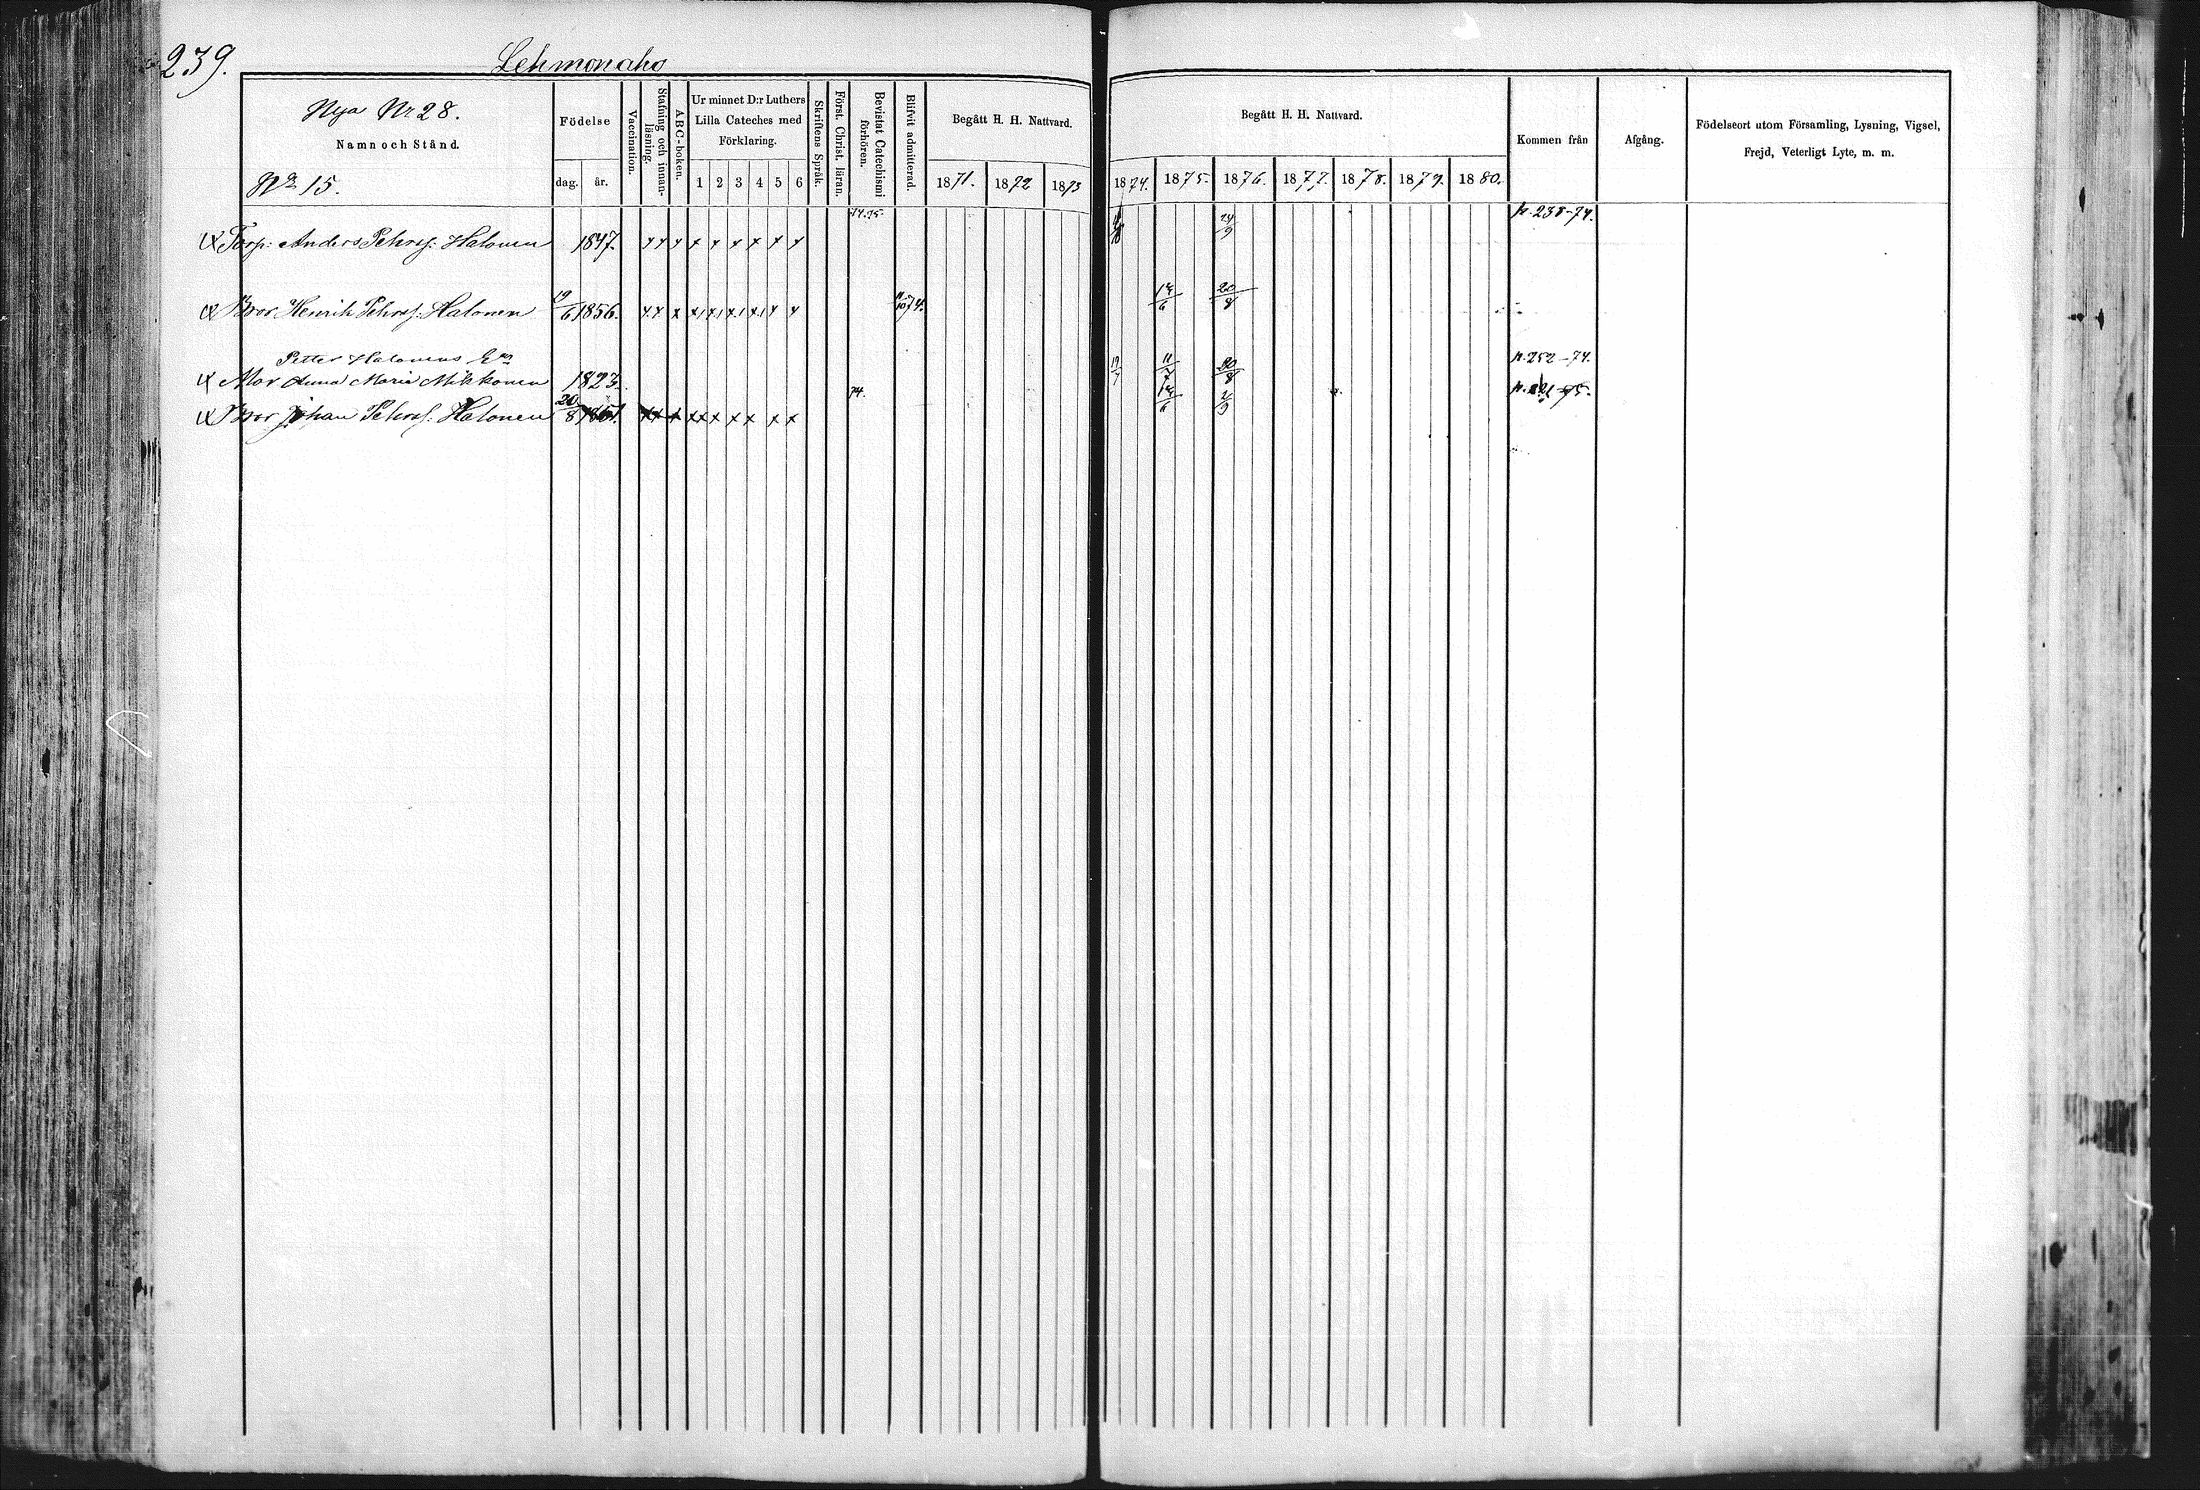 239.
Lehmonaho
Nya Nr 28.
Namn och Stånd.
No 15.
Födelse
dag. år.
Vaccination.
Stafning och innan-läsning.
ABC-boken.
Ur minnet D:r Luthers
Lilla Cateches med
Förklaring.
1 2 3 4 5 6
Skriftens Språk.
Först. Christ. läran.
Bevistat Catechismi förhören.
Blifvit admitterad.
Begått H. H. Nattvard.
1871. 1872 1873
Begått H. H. Nattvard.
1874. 1875. 1876. 1877. 1878. 1879. 1880.
Kommen från
Afgång.
Födelseort utom Församling, Lysning, Vigsel,
Frejd, Veterligt Lyte, m. m.
Torp: Anders Pehrss: Halonen 1847. x x x x x x x x x 74.75. 24/9 p. 238-74.
Bror Henrik Pehrss: Halonen 19/6 1856. x x x x x x x x x 11/10 74. 20/8
Petter Halonens Ea
Mor Anna Maria Mikkonen 1823. 11/7 20/8 p. 252-74.
Bror Johan Pehrss: Halonen 20/8 x x x x x x x x x 74. 2/9